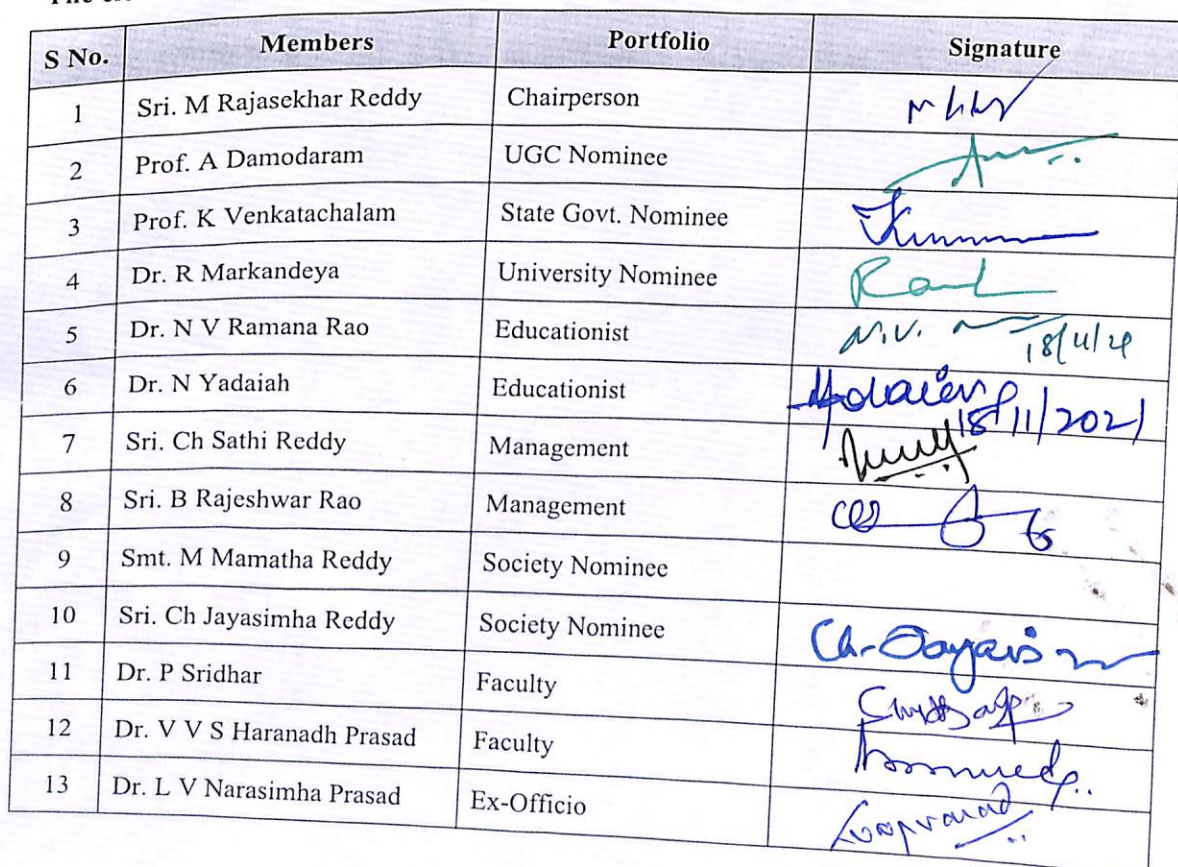 The
S No. Members Portfolio Signature
1 Sri. M Rajasekhar Reddy Chairperson
2 Prof. A Damodaram UGC Nominee
3 Prof. K Venkatachalam State Govt. Nominee
4 Dr. R Markandeya University Nominee
5 Dr. N V Ramana Rao Educationist N.V.
6 Dr. N Yadaiah Educationist 18/11/2021
7 Sri. Ch Sathi Reddy Management
8 Sri. B Rajeshwar Rao Management
9 Smt. M Mamatha Reddy Society Nominee
10 Sri. Ch Jayasimha Reddy Society Nominee
11 Dr. P Sridhar Faculty
12 Dr. V V S Haranadh Prasad Faculty
13 Dr. L V Narasimha Prasad Ex-Officio